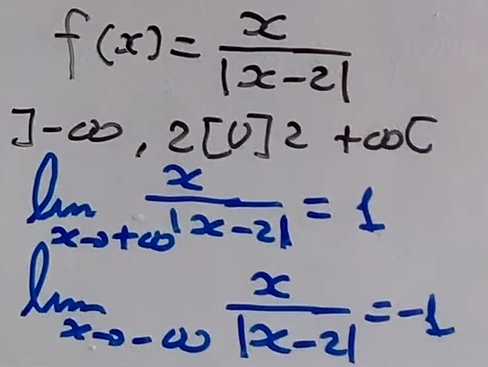 f(x) = x / |x-2|
]-∞, 2[U]2 +∞[
lim x→+∞ x / |x-2| = 1
lim x→-∞ x / |x-2| = -1